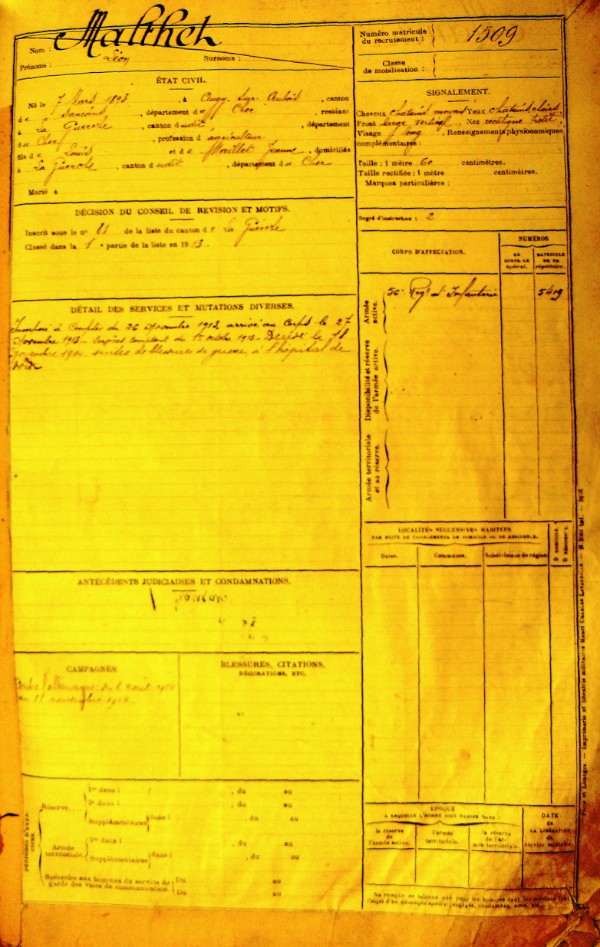 Nom : Malthet
Prénoms : Léon Surnoms :
Numéro matricule
du recrutement : 1509
Classe
de mobilisation :
ÉTAT CIVIL.
Né le 7 Mars 1893, à Augy Sur Aubois, canton
de Sancoins, département du Cher, résidant
à La Guerche, canton dudit, département
du Cher, profession d agriculteur
fils de Louis et de Maillet Jeanne, domiciliés
à La Guerche, canton dudit, département du Cher
Marié à
SIGNALEMENT.
Cheveux chatain moyen Yeux chatain clairs
Front large vertical, Nez rectiligne petit
Visage long, Renseignements physionomiques
complémentaires :
Taille : 1 mètre 60 centimètres.
Taille rectifiée : 1 mètre centimètres.
Marques particulières :
Degré d'instruction : 2
DÉCISION DU CONSEIL DE REVISION ET MOTIFS.
Inscrit sous le n° 21 de la liste du canton de La Guerche
Classé dans la 1e partie de la liste en 1913
CORPS D'AFFECTATION.
NUMÉROS
MATRICULE
Armée
active.
Régt d'Infanterie 5419
Disponibilité et réserve
de l'armée active.
Armée territoriale
et sa réserve.
DÉTAIL DES SERVICES ET MUTATIONS DIVERSES.
Incorporé à Compter du 26 Novembre 1913, arrivé au Corps le 27
Novembre 1913. Décédé le 11
novembre 1914 suites de blessures de guerre à l'hôpital de
LOCALITÉS SUCCESSIVES HABITÉES
PAR SUITE DE CHANGEMENTS DE DOMICILE OU DE RÉSIDENCE.
Dates. Communes. Subdivisions de région.
ANTÉCÉDENTS JUDICIAIRES ET CONDAMNATIONS.
CAMPAGNES.
Contre l'allemagne du août 1914
au 11 novembre 1914.
BLESSURES, CITATIONS,
DÉCORATIONS, ETC.
Réserve.
1re dans l , du au
2e dans l , du au
Supplémentaires dans l , du au
Armée
territoriale.
1re dans l , du au
Supplémentaires dans l , du au
Spéciales aux hommes du service de
garde des voies de communication. Du au
Du au
ÉPOQUE
À LAQUELLE L'HOMME DOIT PASSER DANS :
la réserve
de l'armée active.
l'armée
territoriale.
la réserve
de l'ar-
mée territoriale.
DATE
de
LA LIBÉRATION
du
service militaire.